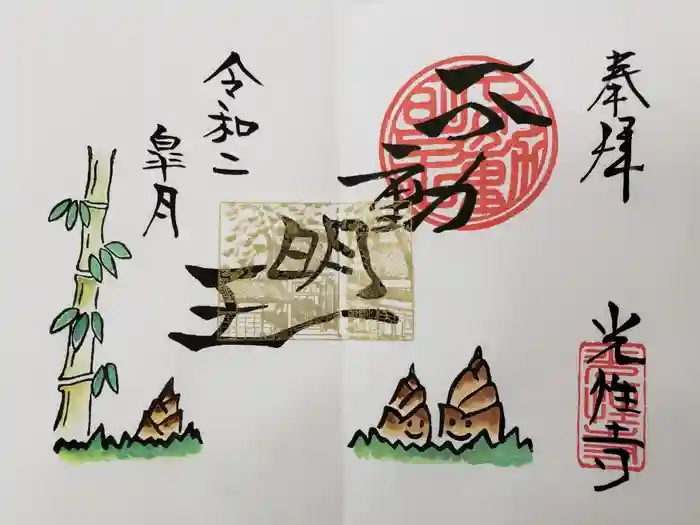 奉拝
不動
明
王
光性寺
令和二
皐月